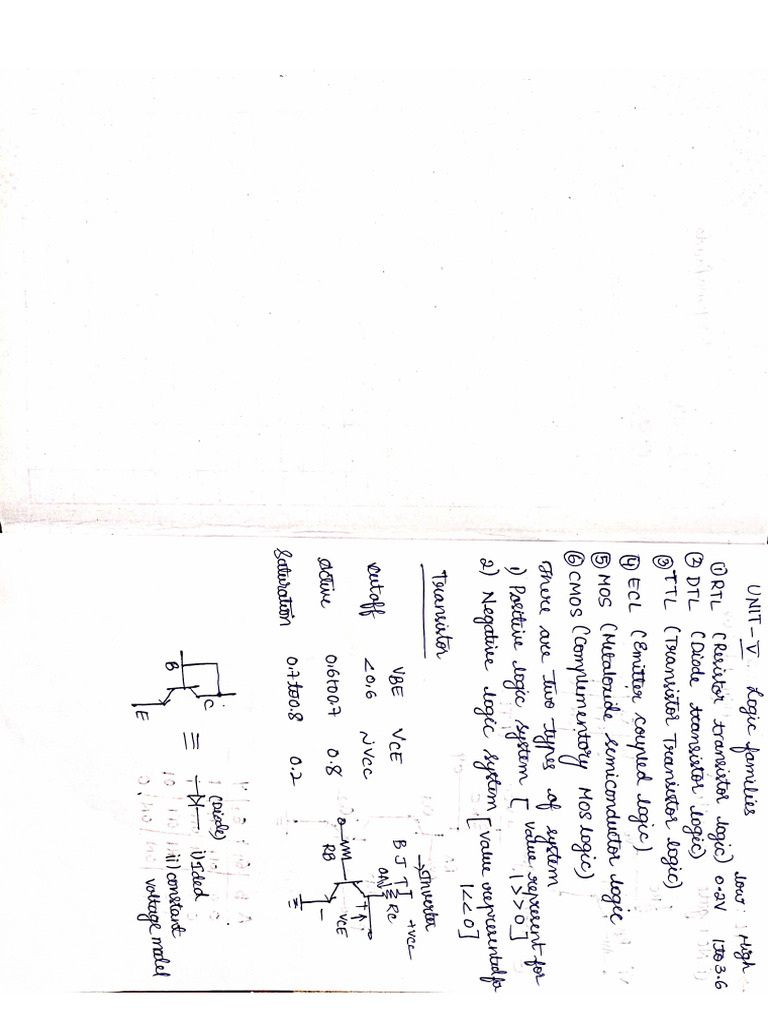 UNIT-V Logic families
low: High
① RTL (Resistor transistor logic) 0.2V 1 to 3.6
② DTL (Diode transistor logic)
③ TTL (Transistor Transistor logic)
④ ECL (Emitter coupled logic)
⑤ MOS (Metaloxide semiconductor logic
⑥ CMOS (Complementory MOS logic)
There are two types of system
1) Positive logic system [ value represent for
1>>0]
2) Negative logic system [ value represented fo
1<<0]
Transistor
→ Inverter
VBE VCE
BJT
+VCC
RC
cutoff <0.6 ~Vcc
Active 0.6 to 0.7 0.8
RB
VCE
Saturation 0.7 to 0.8 0.2
B C E ≡
(Diode)
i) Ided
ii) constant
voltage model